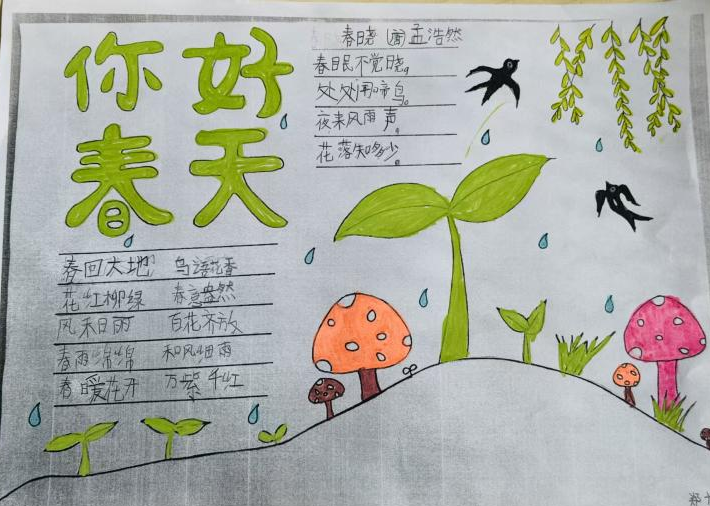 你好
春天
春晓 (唐) 孟浩然
春眠不觉晓。
处处闻啼鸟。
夜来风雨声。
花落知多少。
春回大地 鸟语花香
花红柳绿 春意盎然
风和日丽 百花齐放
春雨绵绵 和风细雨
春暖花开 万紫千红